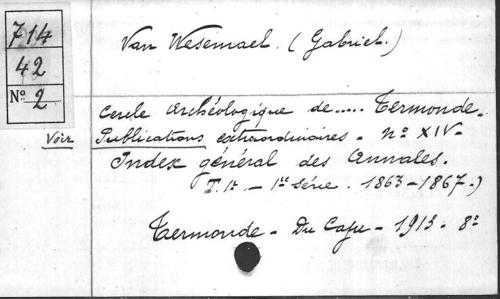 714
42
Nº 2
Van Wesemael. (Gabriel.)
Cercle Archéologique de..... Termonde.
Voir Publications extraordinaires - nº XIV-
Index général des Annales.
T. 1r. - 1re Série. 1863-1867.)
Termonde - Du Caju - 1913. 8º